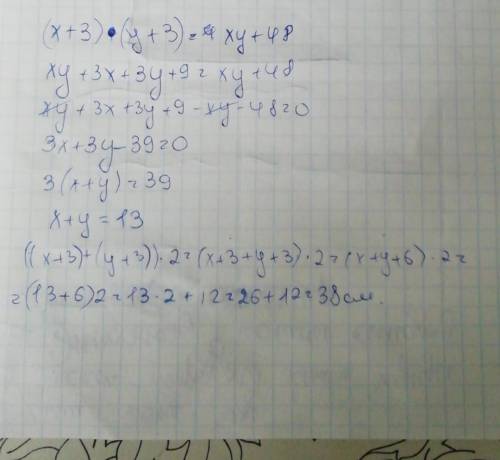 (x+3)•(y+3)=xy+48
xy+3x+3y+9=xy+48
xy+3x+3y+9-xy-48=0
3x+3y-39=0
3(x+y)=39
x+y=13
((x+3)+(y+3))·2=(x+3+y+3)·2=(x+y+6)·2=
=(13+6)2=13·2+12=26+12=38см.